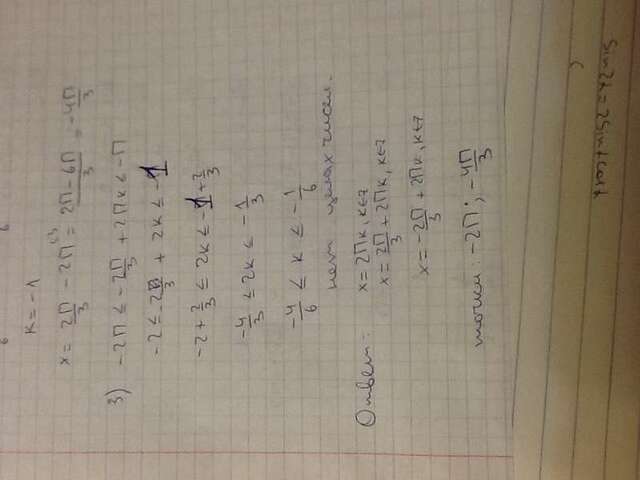 6 6
k = -1
x = 2П/3 - 2П^(3 = (2П-6П)/3 = -4П/3
3) -2П ≤ -2П/3 + 2Пk ≤ -П
-2 ≤ -2/3 + 2k ≤ -1
-2 + 2/3 ≤ 2k ≤ -1 + 2/3
-4/3 ≤ 2k ≤ -1/3
-4/6 ≤ k ≤ -1/6
нет целах чисел.
Ответ: x = 2Пk, k∈Z
x = 2П/3 + 2Пk, k∈Z
x = -2П/3 + 2Пk, k∈Z
точки: -2П; -4П/3
sin2x = 2sinxcosx